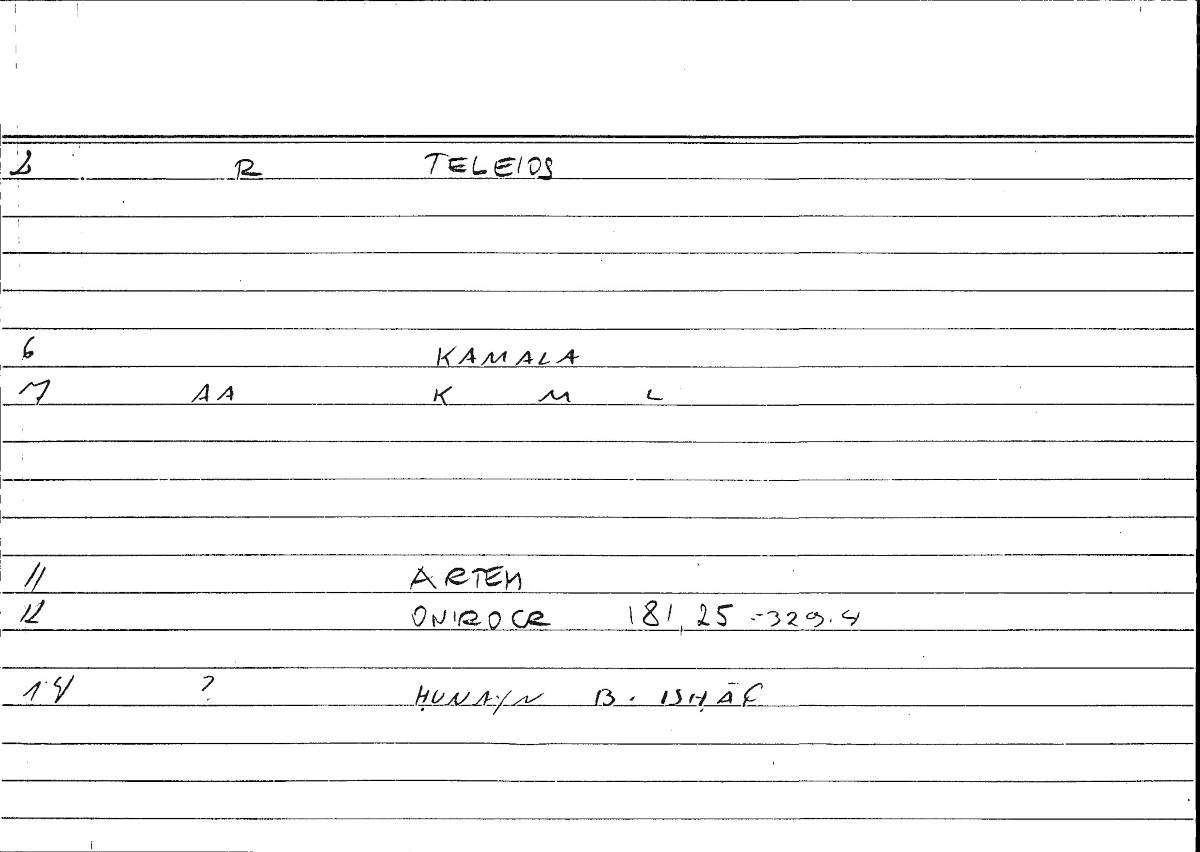 2 R TELEIOS
6 KAMALA
7 AA K M L
11 ARTEM
12 ONIROCR 181,25 - 329.4
14 ? ḤUNAYN B. ISḤĀḲ